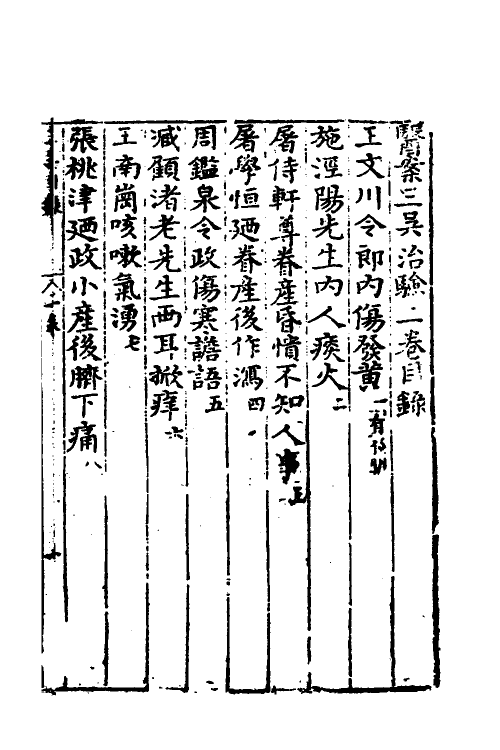 醫案三吳治驗一卷目錄
王文川令郎內傷發黃 一 有
施涇陽先生內人痰火 二
屠侍軒尊眷產昏憒不知人事 三
屠學恒廼眷產後作瀉 四
周鑑泉令政傷寒譫語 五
臧顧渚老先生兩耳掀痒 六
王南崗咳嗽氣湧 七
張桃津廼政小產後臍下痛 八